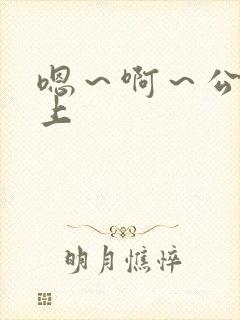 嗯～啊～公
上
明月憔悴